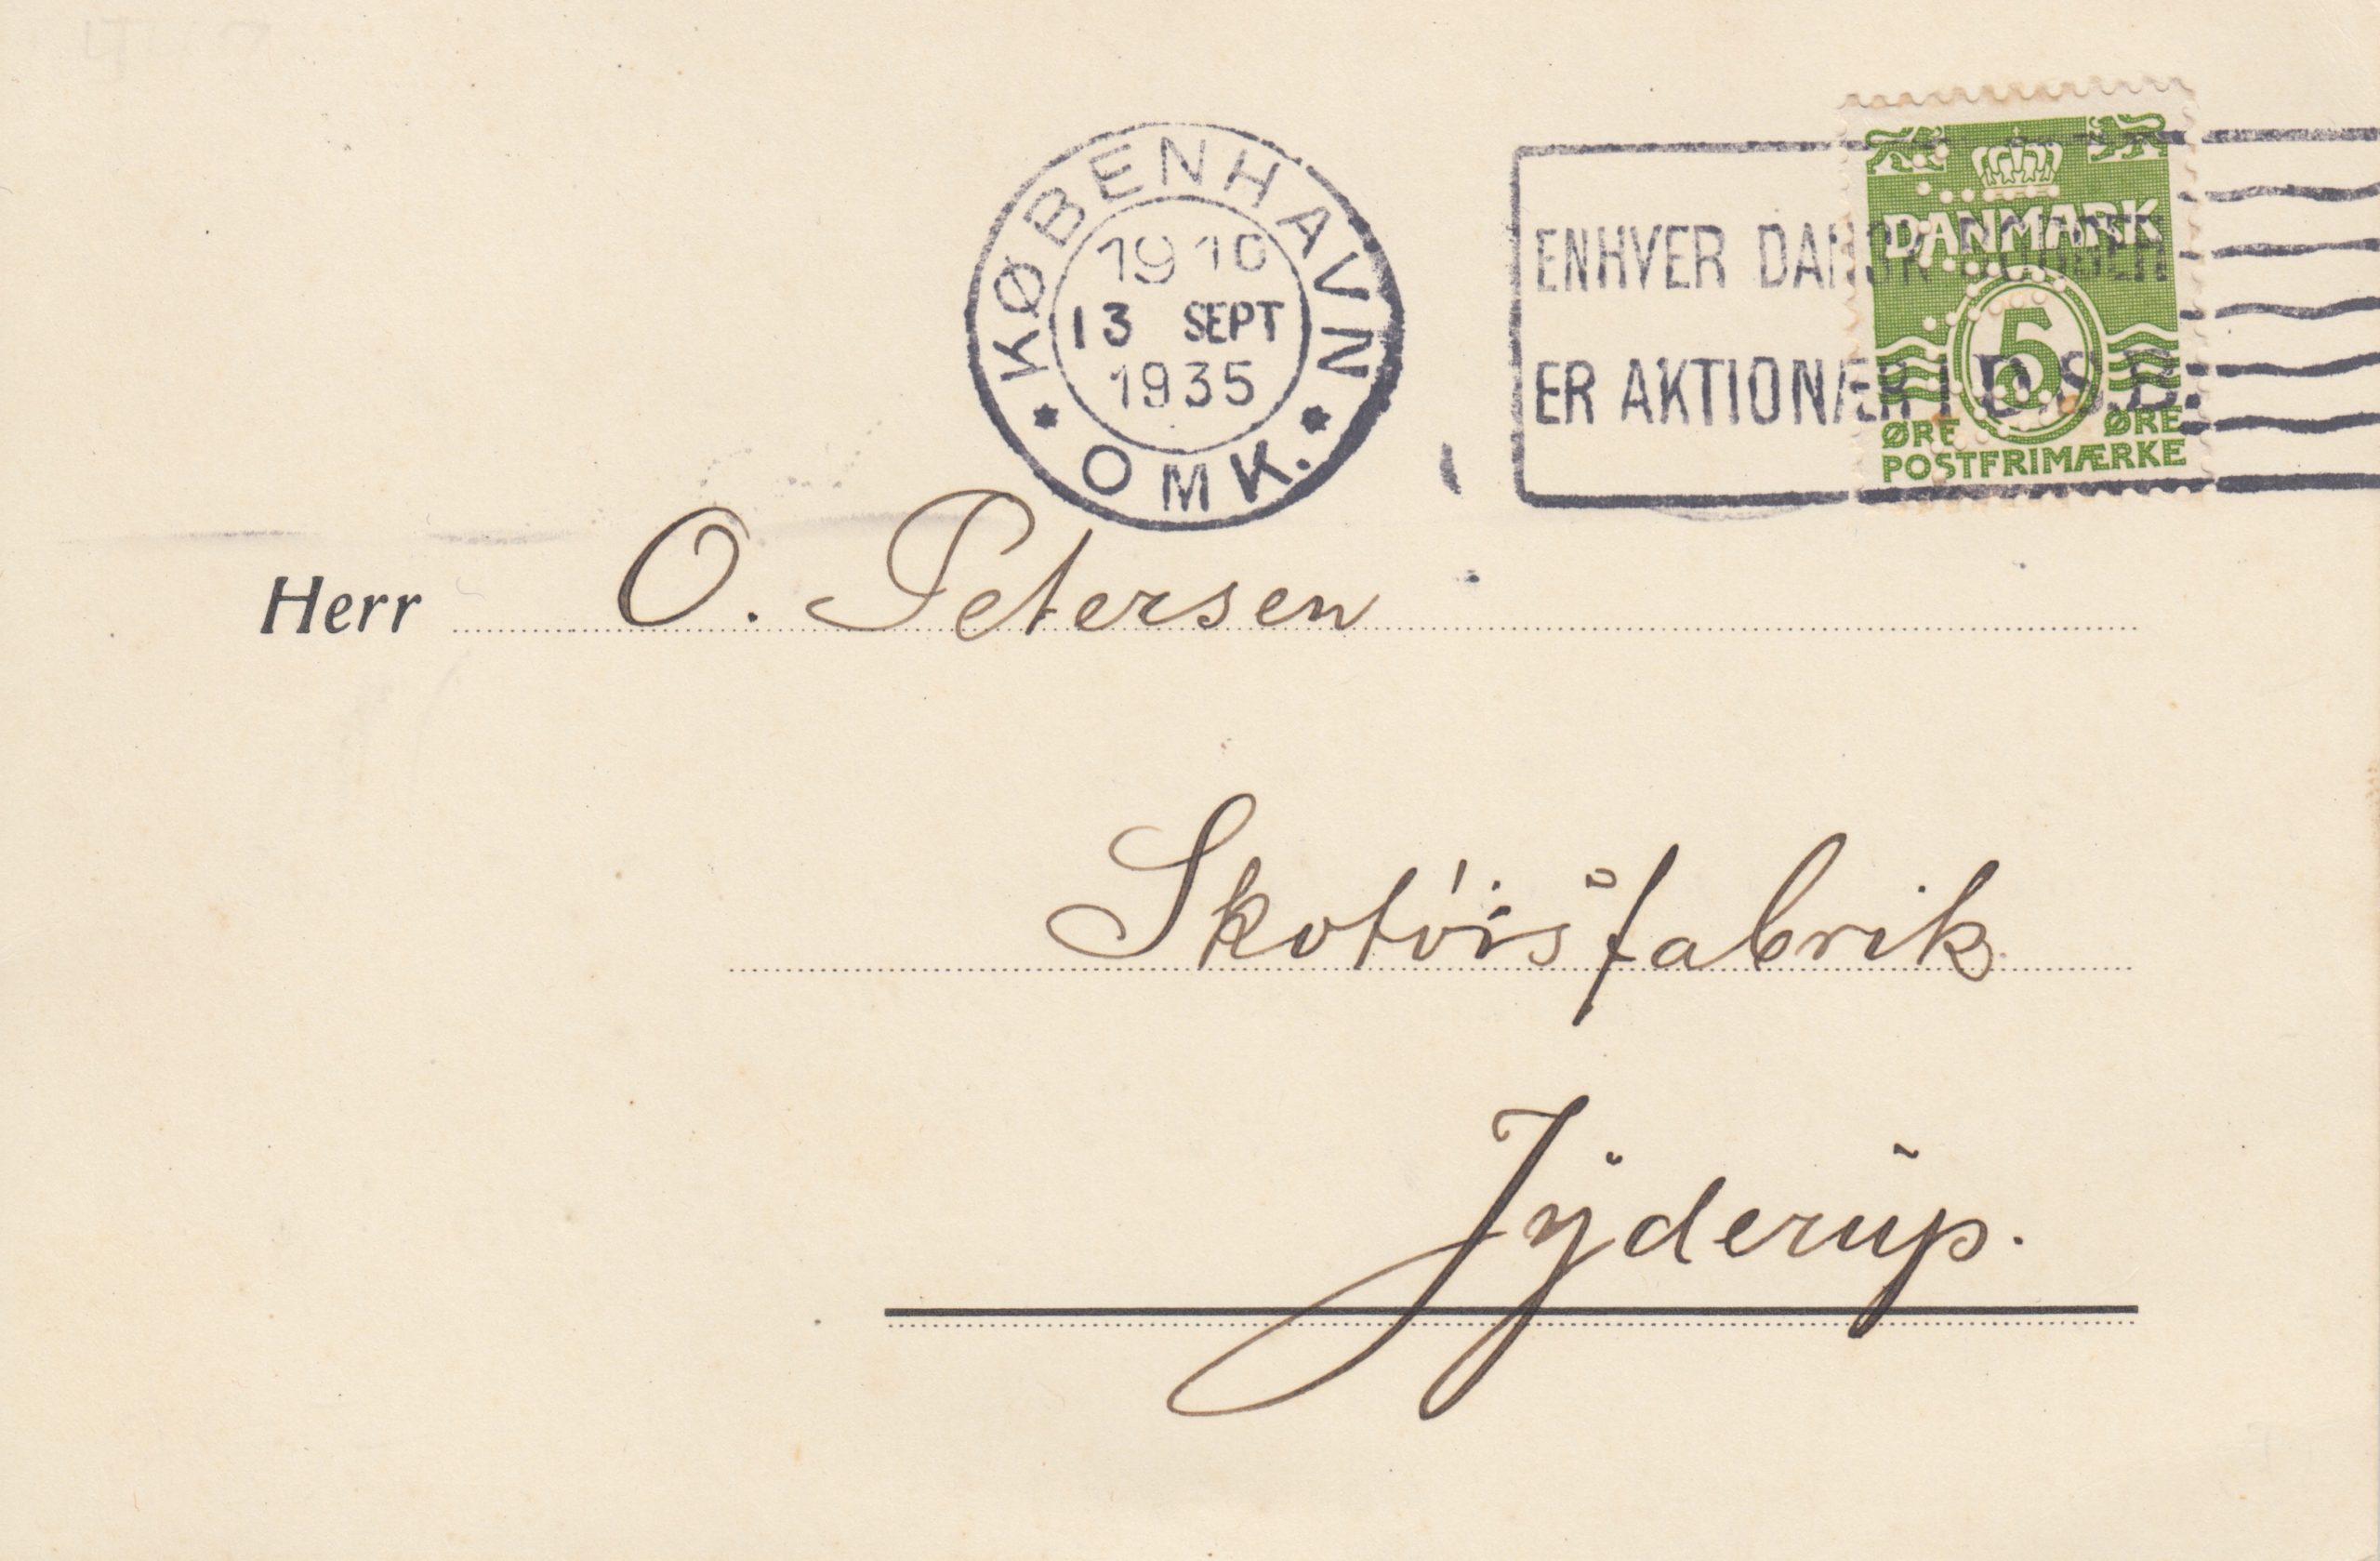 KØBENHAVN
19 10
13 SEPT
1935
OMK.
ENHVER DANSK BORGER
ER AKTIONÆR I D.S.B.
DANMARK
5
ØRE ØRE
POSTFRIMÆRKE
Herr O. Petersen
Skotøisfabrik
Jyderup.